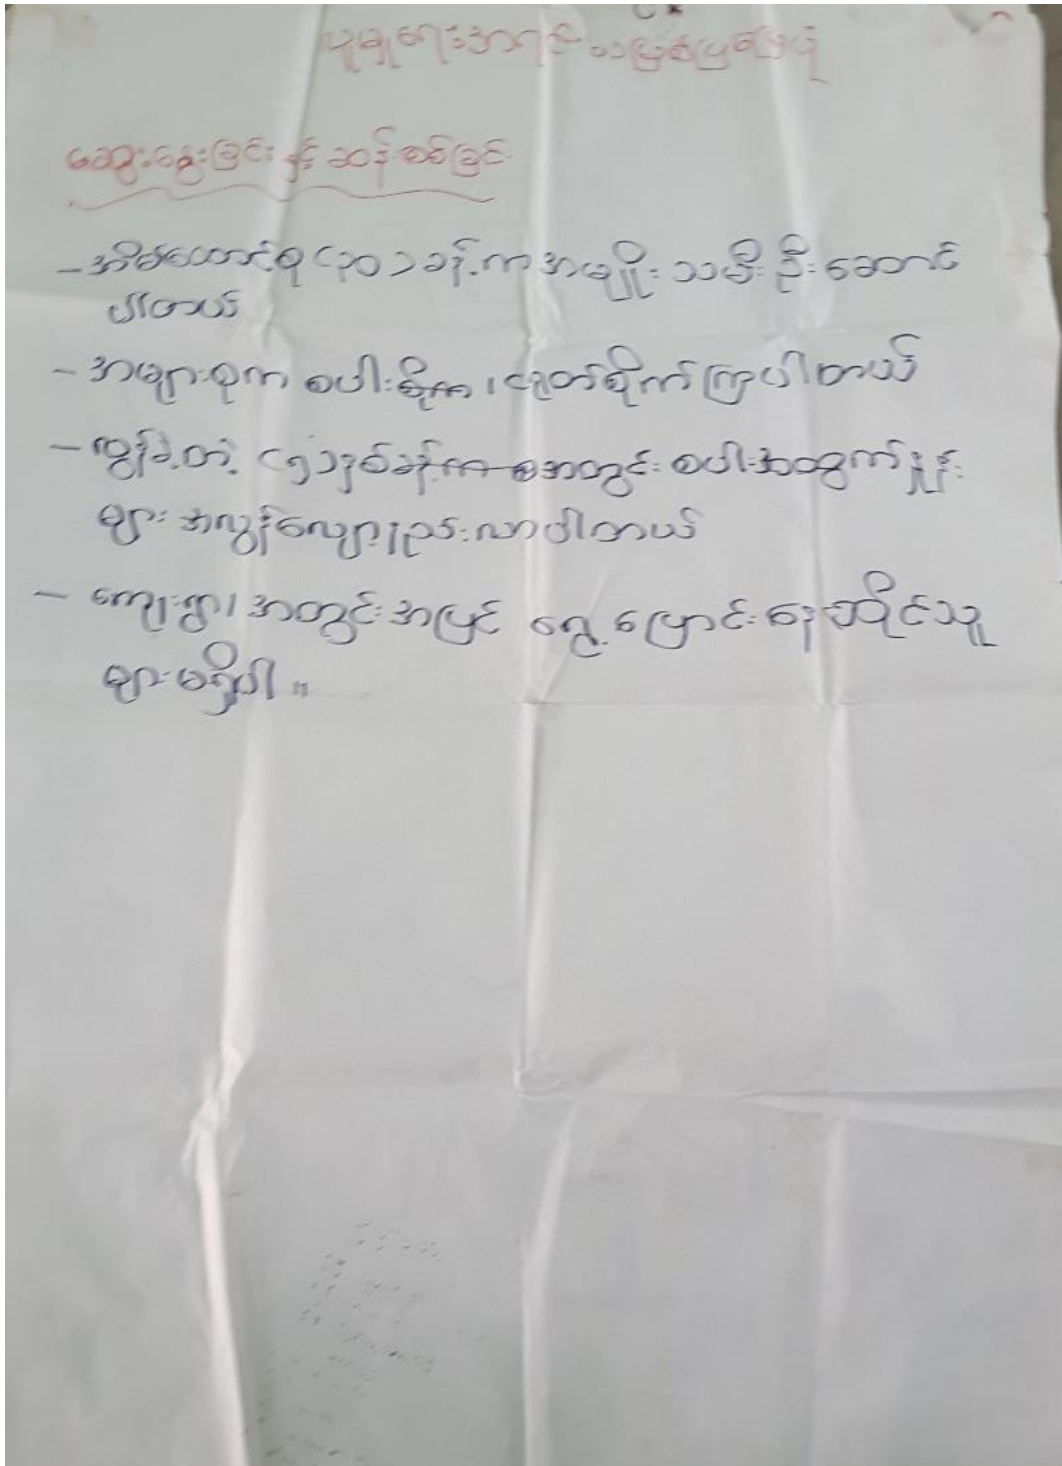 လူမှုရေးအရင်းအမြစ်ပြမြေပုံ
ဆွေးနွေးခြင်းနှင့် ဆန်းစစ်ခြင်း
- အိမ်ထောင်စု (၃၀) ခန့်က အမျိုးသမီးဦးဆောင်
ပါတယ်
- အများစုက စပါးစိုက၊ စိုက်ကြပါတယ်
- လွန်ခဲ့တဲ့ (၅) နှစ်ခန့်က စအတွင်း စပါးအထွက်နှုန်း
များ အလွန်လျော့နည်းလာပါတယ်
- ကျေးရွာ၊ အတွင်းအပြင် ရွှေ့ပြောင်းနေထိုင်သူ
များမရှိပါ။